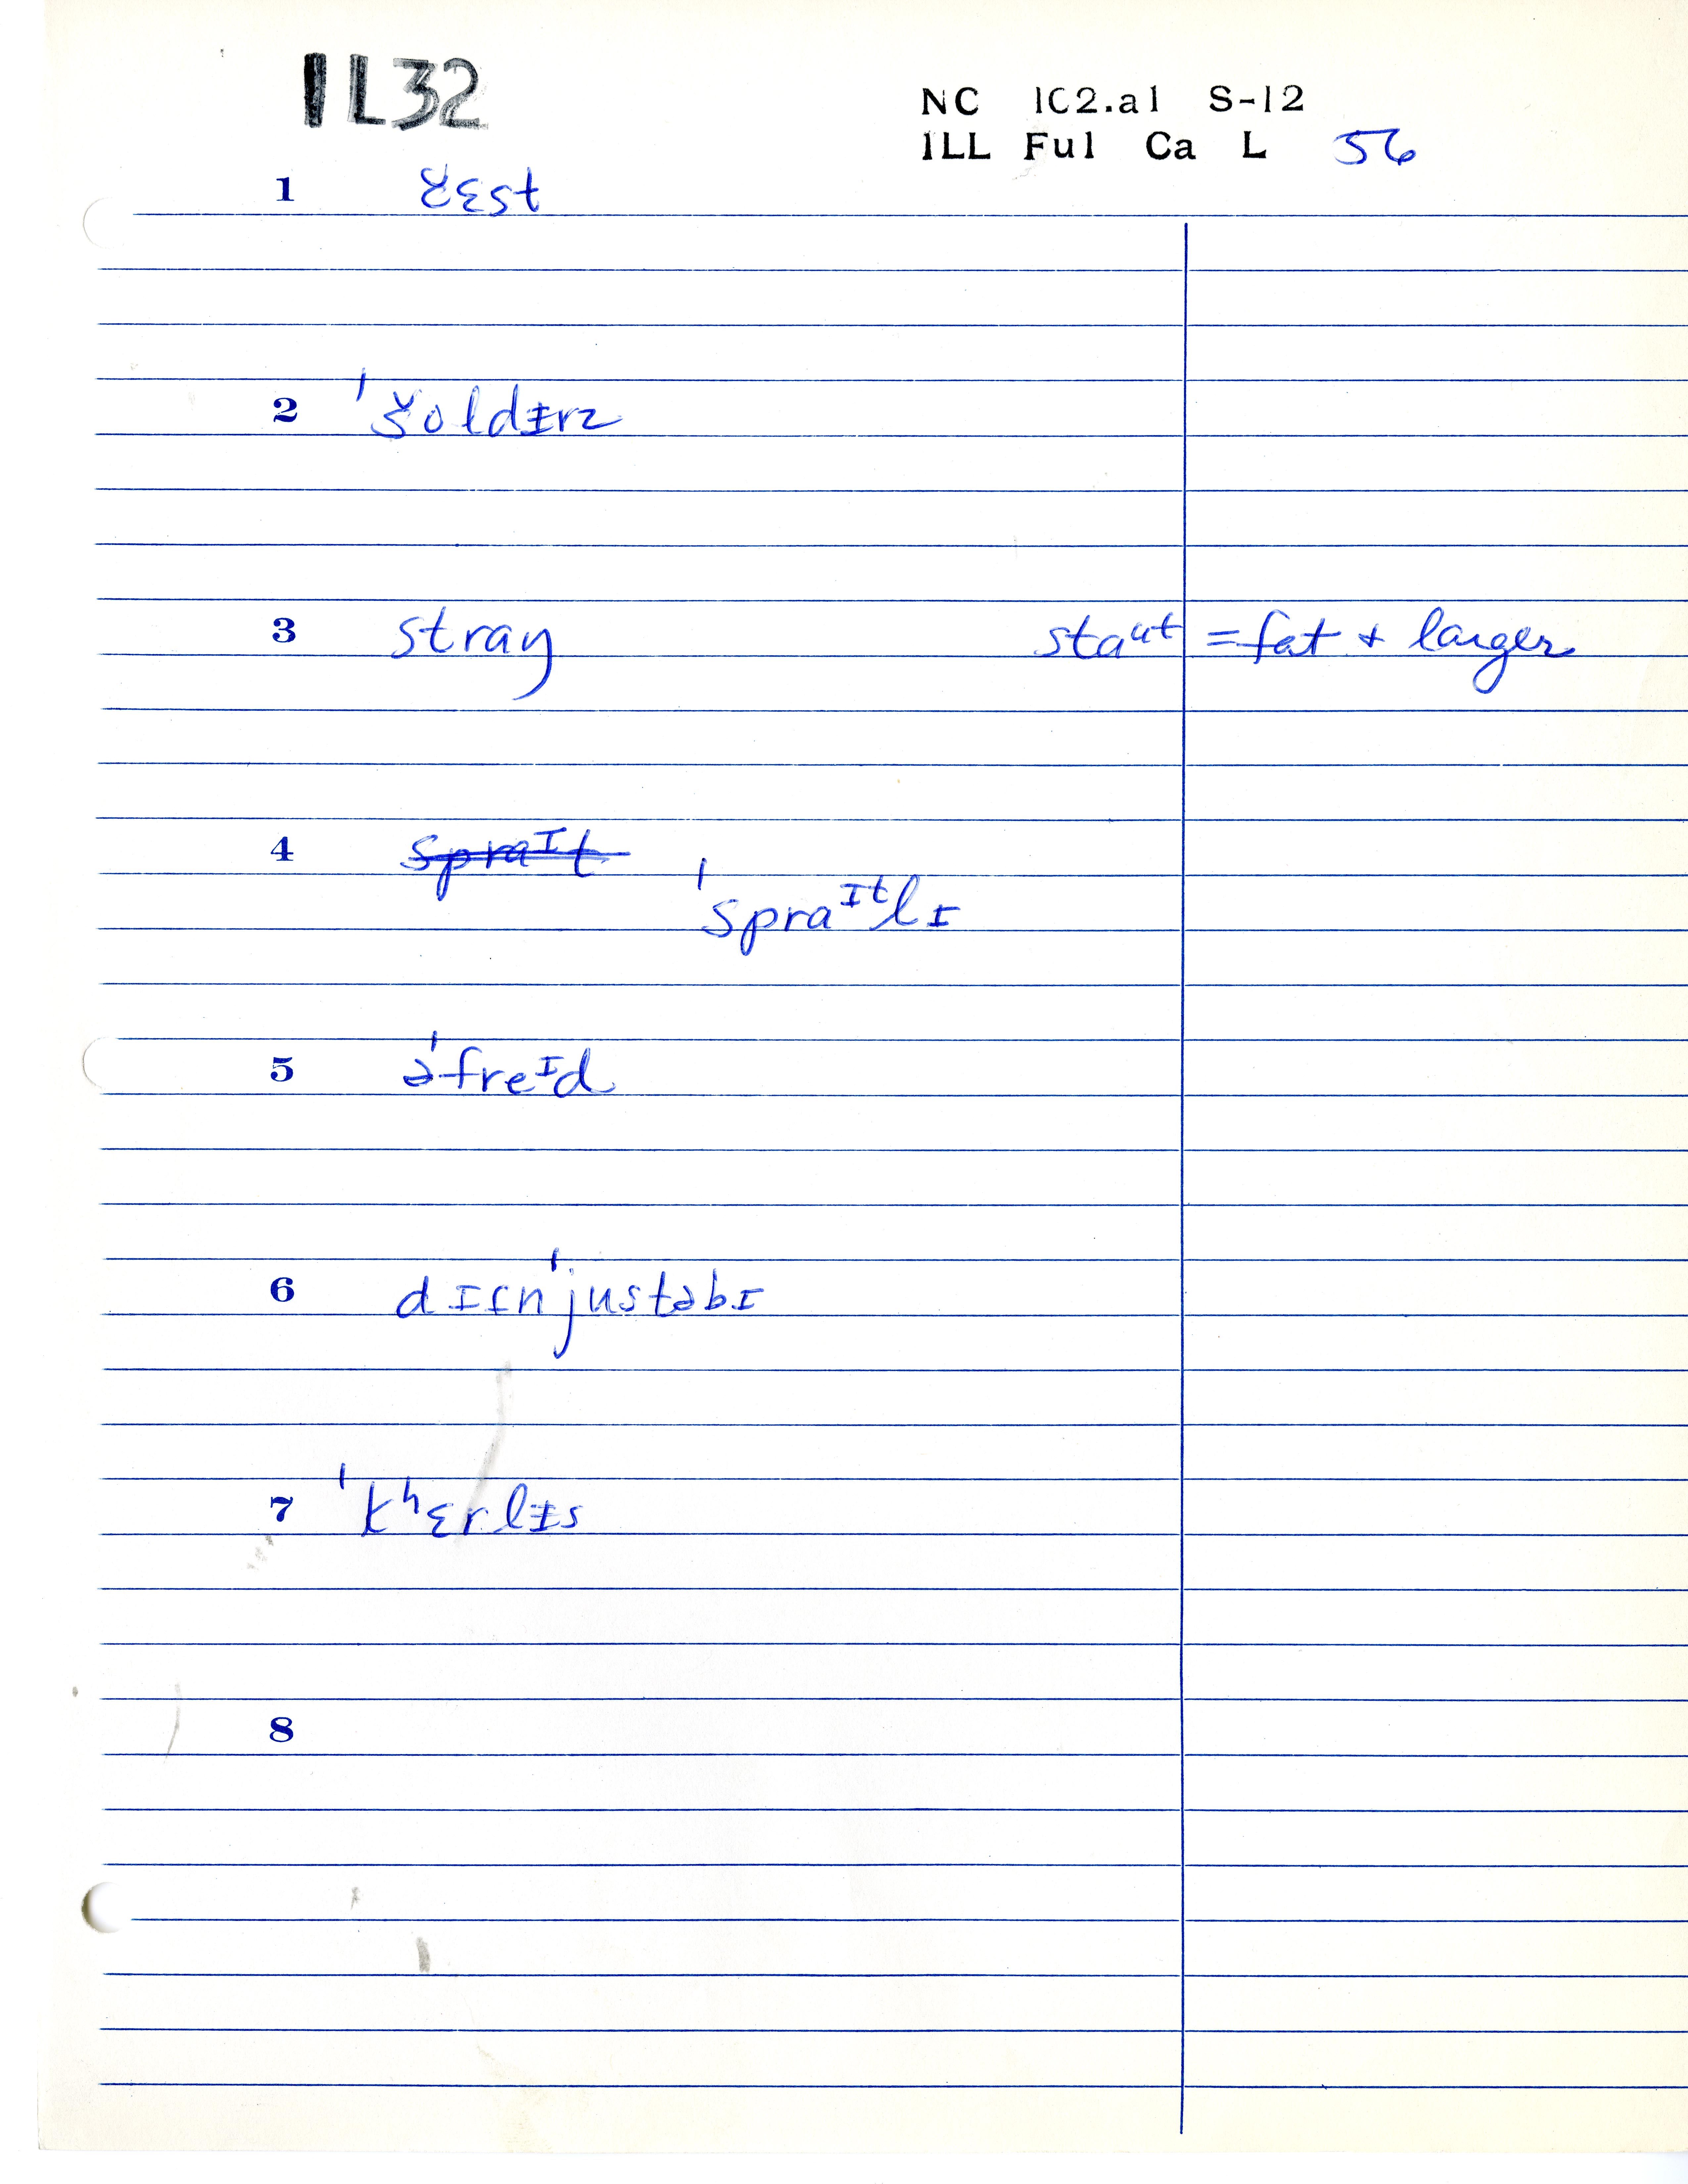 IL32
NC 1C2.a1 S-12
ILL Ful Ca L 56
1 č̵ɛst
2 ˈšoldᵻrz
3 straŋ staᵘᵗ = fat + larger
4 spraᴵt
ˈspraᴵᵗlɪ
5 əˈfreᴵd
6 dɪɾnˈjustəbɪ
7 ˈkʰɛrlᵻs
8